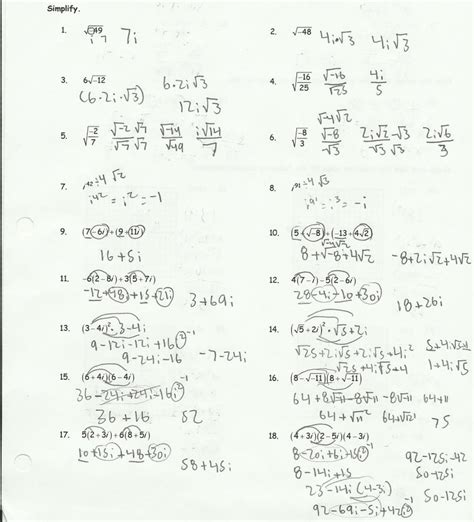 Simplify.
1. √-49 i 7 7i
2. √-48 4i√3 4i√3
3. 6√-12 6·2i√3
(6·2i·√3) 12i√3
4. √-16/25 √-16/√25 4i/5
5. √-2/7 √-2 √7/√7 √7 √-14/√49 i√14/7
6. √-8/3 √-4√2 √-8/√3 2i√2·√3/√3 √3 2i√6/3
7. i⁴²
i⁴² = i² = -1
8. i⁹¹
i⁹¹ = i³ = -i
9. (7-6i)+(9+11i)
16+5i
10. (5+√-8)+(-13+4√2)
√-4√2
8+√-8+4√2 -8+2i√2+4√2
11. -6(2-8i)+3(5+7i)
-12+48i+15+21i 3+69i
12. 4(7-i)-5(2-6i)
28-4i-10+30i 18+26i
13. (3-4i)² · 3-4i
9-12i-12i+16i² -1
9-24i-16 -7-24i
14. (√5+2i)² · √5+2i
√25+2i√5+2i√5+4i²
√25+4i√5+4 5+4i√5-4
1+4i√5
15. (6+4i)(6-4i)
36-24i+24i-16i² -1
36+16 52
16. (8-√-11)(8+√-11)
64+8√-11-8√-11
64+√11² 64+11
75
17. 5(2+3i)+6(8+5i)
10+15i+48+30i
58+45i
18. (4+3i)(2-5i)(4-3i)
8-20i+6i-15i² -1
8-14i+15
23-14i(4-3i)
92-69i-5i+42i² -1
92-125i-42
50-125i
50-125i